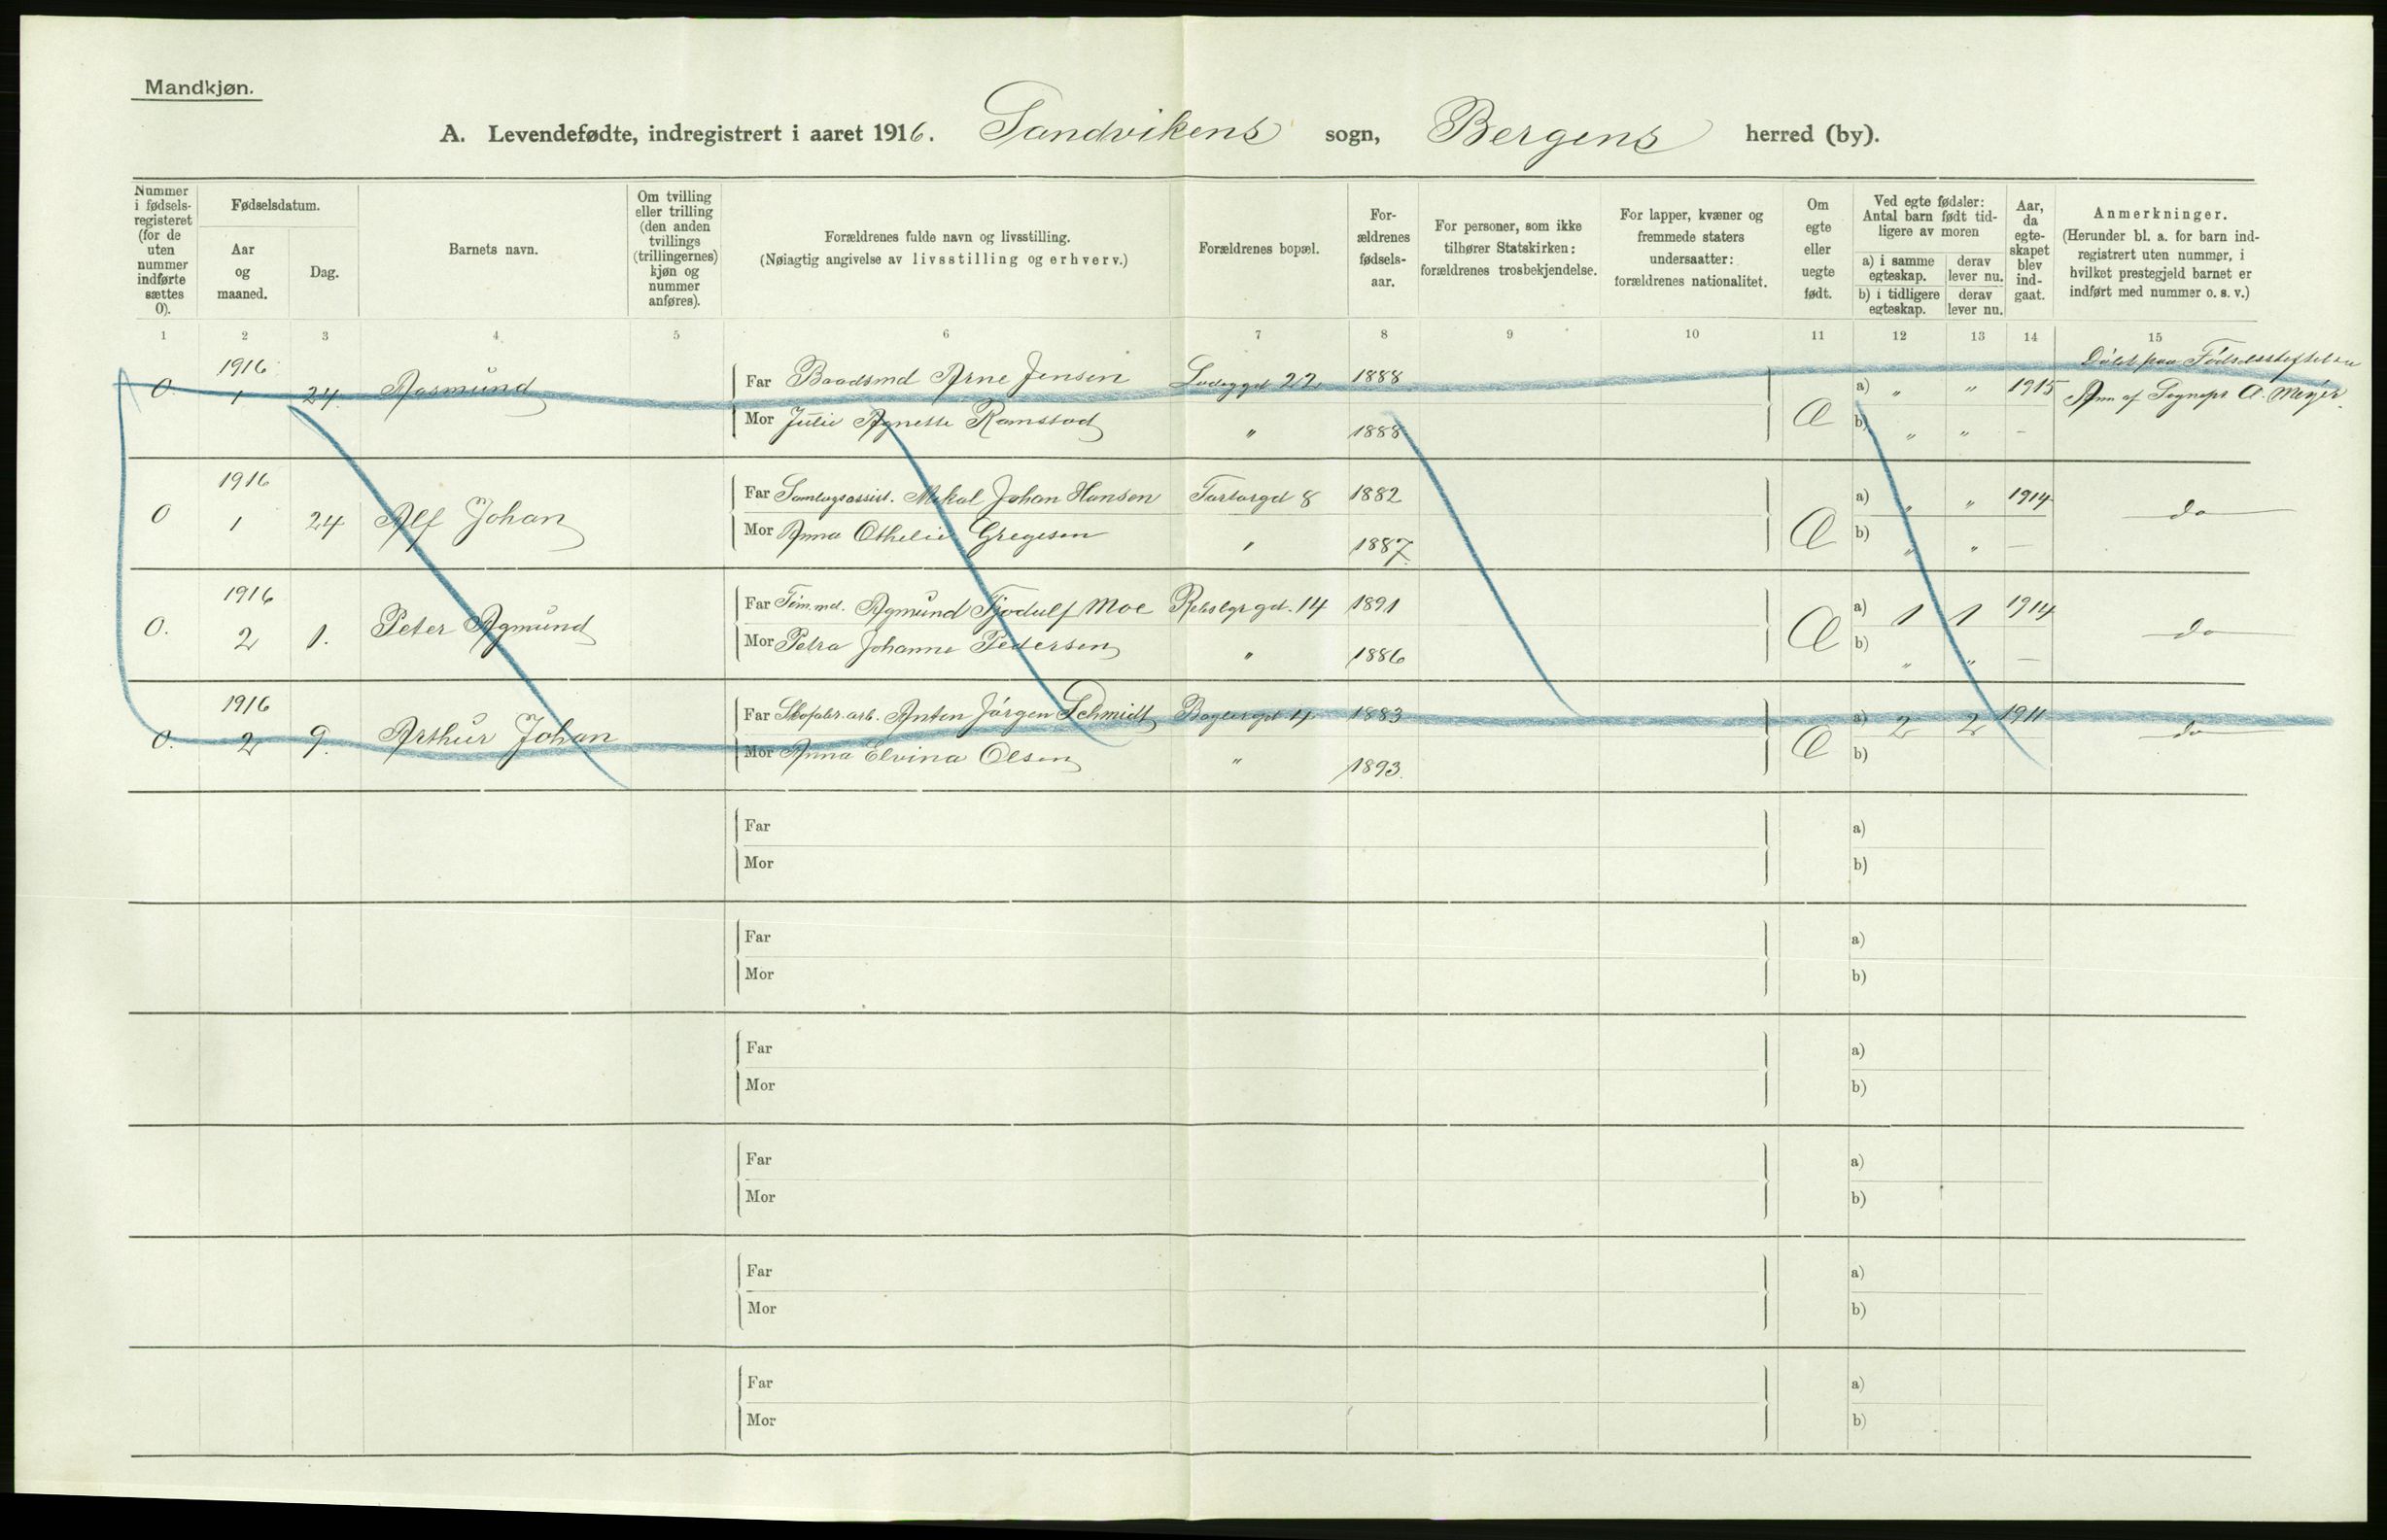 Mandkjøn.
A. Levendefødte, indregistrert i aaret 1916. Sandvikens sogn, Bergens herred (by).
Nummer i fødsels-registeret (for de uten nummer indførte sættes 0).
Fødselsdatum.
Aar og maaned.
Dag.
Barnets navn.
Om tvilling eller trilling (den anden tvillings (trillingernes) kjøn og nummer anføres).
Forældrenes fulde navn og livsstilling.
(Nøiagtig angivelse av livsstilling og erhverv.)
Forældrenes bopæl.
For-ældrenes fødsels-aar.
For personer, som ikke tilhører Statskirken: forældrenes trosbekjendelse.
For lapper, kvæner og fremmede staters undersaatter: forældrenes nationalitet.
Om egte eller uegte født.
Ved egte fødsler: Antal barn født tid-ligere av moren
a) i samme egteskap.
derav lever nu.
b) i tidligere egteskap.
derav lever nu.
Aar, da egte-skapet blev ind-gaat.
Anmerkninger.
(Herunder bl. a. for barn ind-registrert uten nummer, i hvilket prestegjeld barnet er indført med nummer o. s. v.)
1 2 3 4 5 6 7 8 9 10 11 12 13 14 15
0. 1916 1 24. Aasmund
Far Baadsmd Arne Jensen 22 1888 a) " " 1915
Døbt paa Fødselsstiftelsen
Anm af Sognepr A. Meyer.
Mor Julie Agnette Ramstad " 1888 Æ b) " " -
0 1916 1 24 Alf Johan
Far Mikal Johan Hansen Tartargd 8 1882 a) " " 1914 do
Mor Anna Othelie Gregesen " 1887 Æ b) " " —
0. 1916 2 1. Peter Agmund
Far Tøm.md. Agmund Tjodulf Moe gd. 14 1891 a) 1 1 1914 do
Mor Petra Johanne Pedersen " 1886 Æ b) " " —
0. 1916 2 9. Arthur Johan
Far Skofabr. arb. Anton Jørgen Schmidt Baglergd 4 1883 a) 2 2 1911 do
Mor Anna Elvina Olsen " 1893. Æ b)
Far a)
Mor b)
Far a)
Mor b)
Far a)
Mor b)
Far a)
Mor b)
Far a)
Mor b)
Far a)
Mor b)